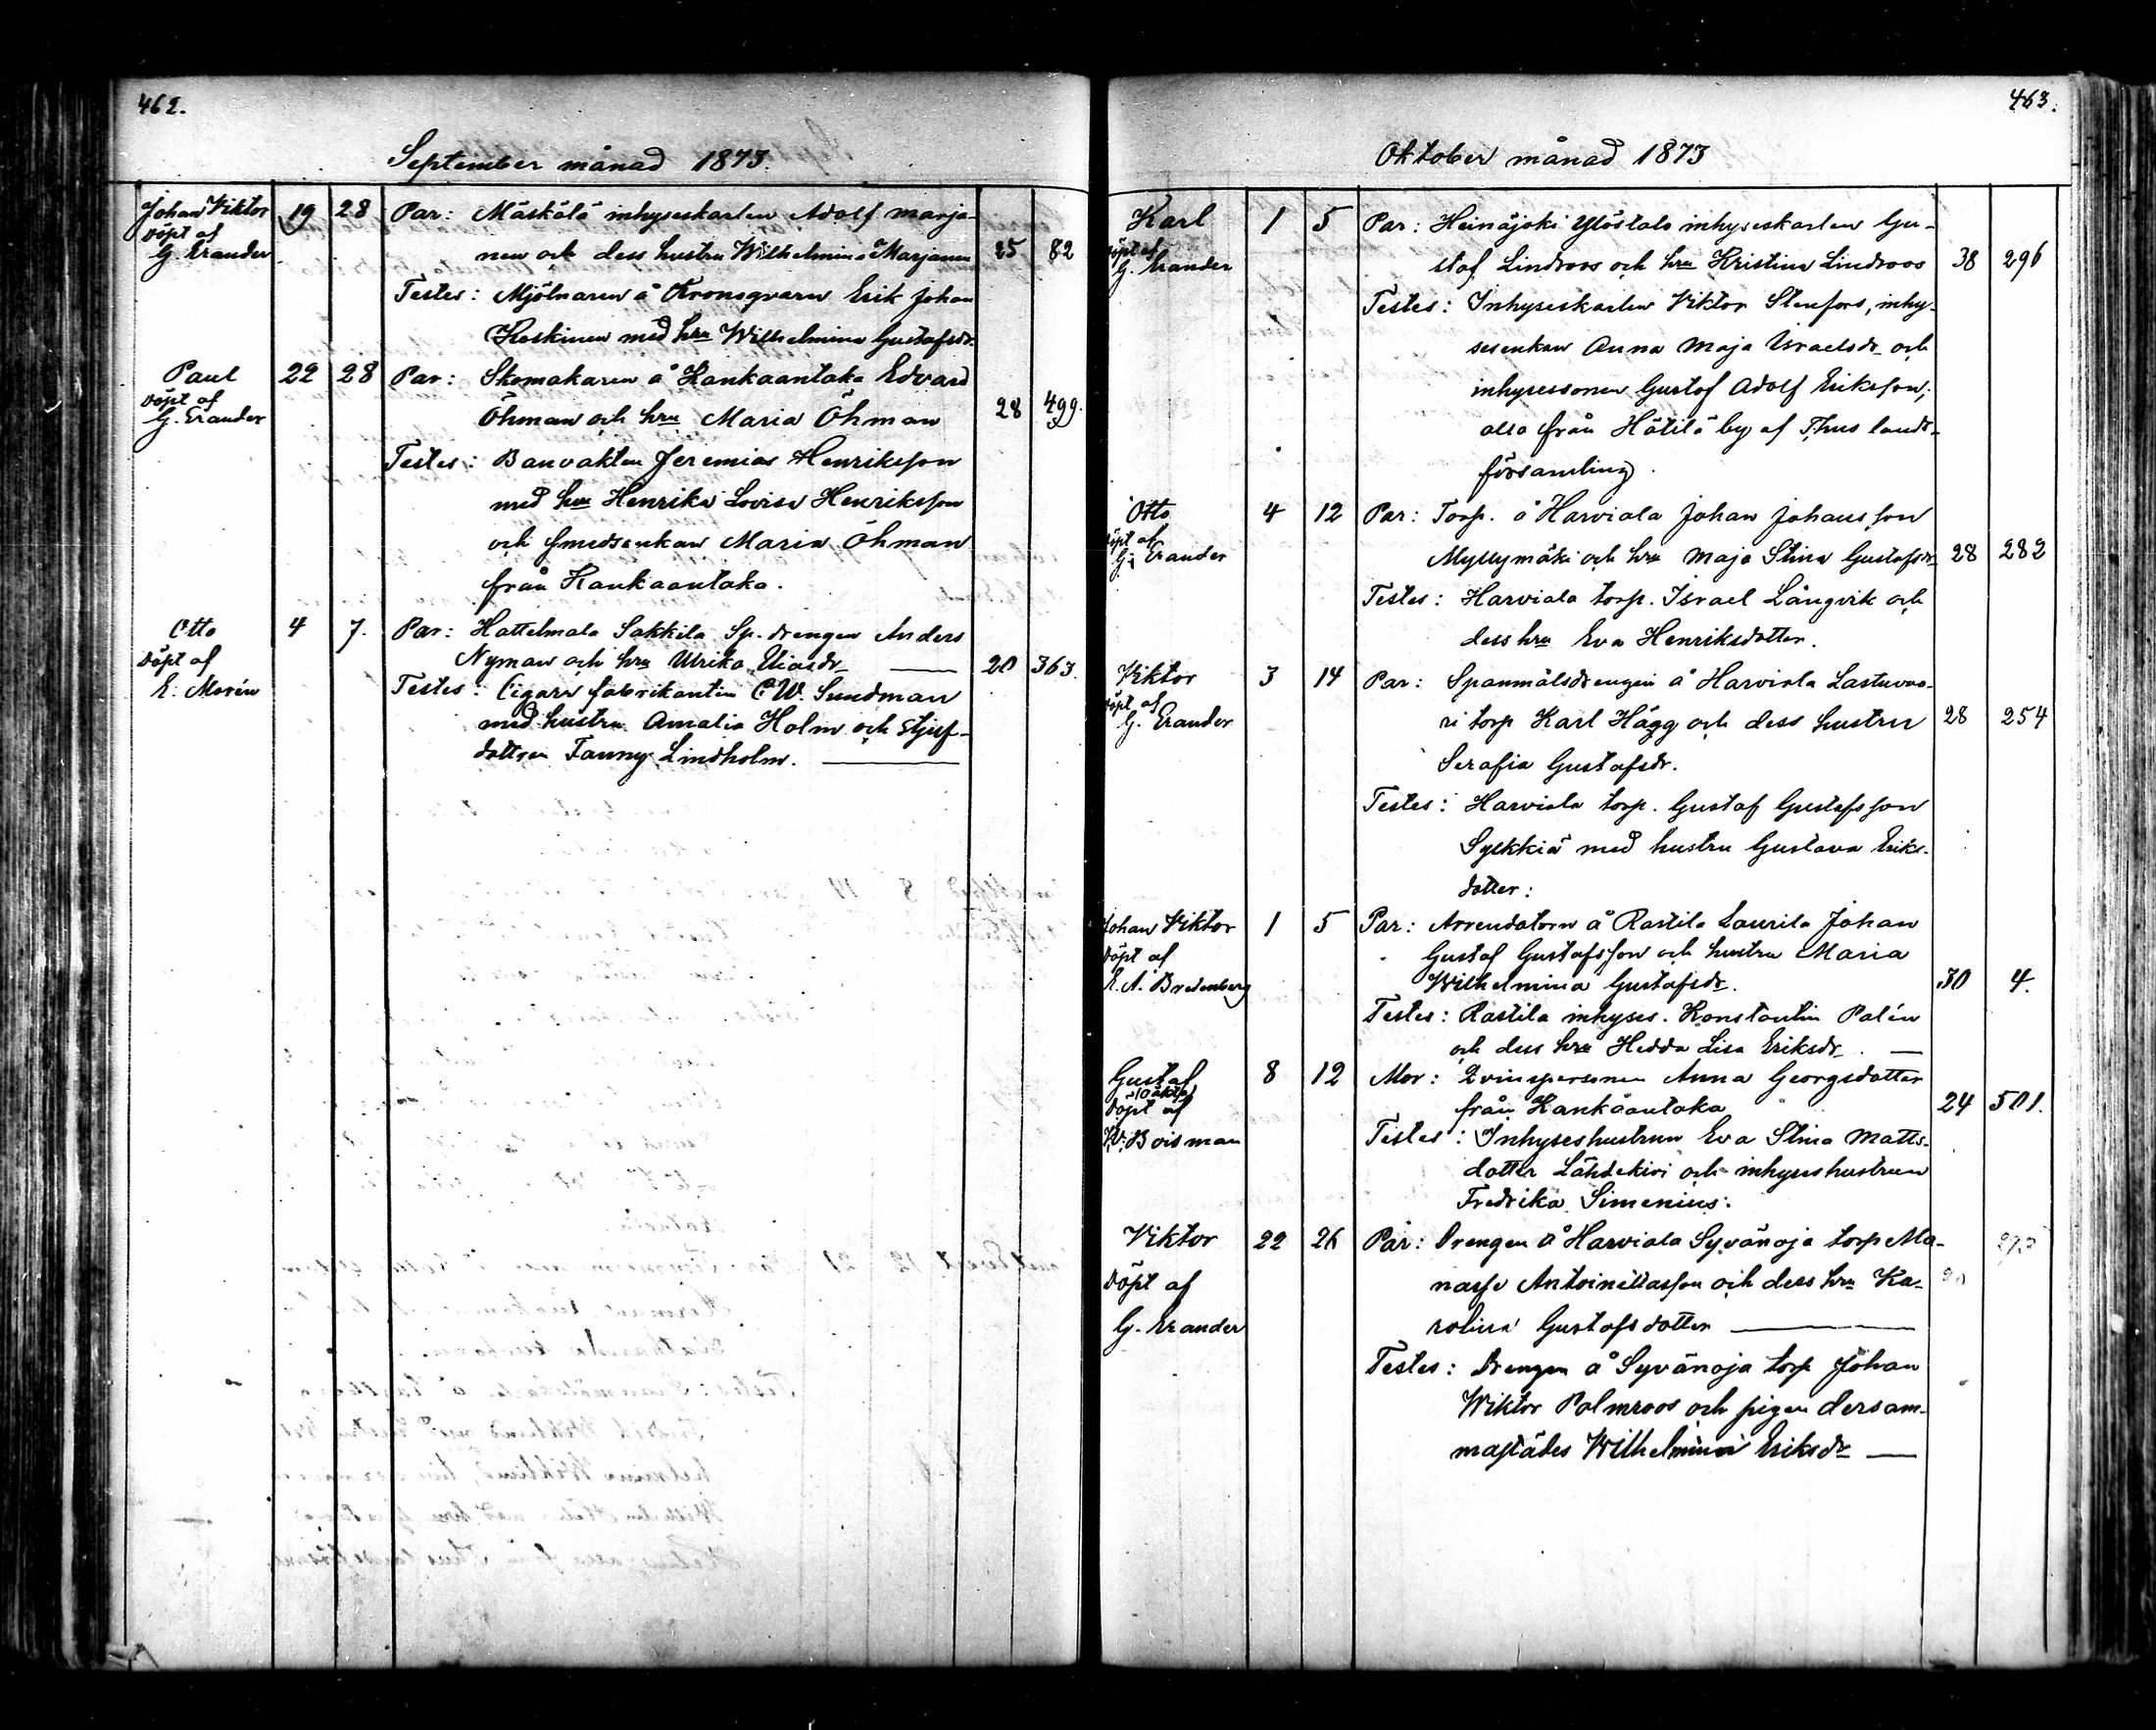 462.
September månad 1873.
Johan Viktor 19 28 Par: Mäskälä inhyseskarlen Adolf Marja-
döpt af
G. Erander nen och dess hustru Wilhelmina Marjanen 25 82
Testes: Mjölnaren å Kronoqvarn Erik Johan
Koskinen med hru Wilhelmina Gustafsdr.
Paul 22 28 Par: Skomakaren å Kankaantaka Edvard
döpt af
G. Erander Öhman och hru Maria Öhman 28 499.
Testes: Banvakten Jeremias Henriksson
med hru Henrika Lovisa Henriksson
och smedsenkan Maria Öhman
från Kankaantaka.
Otto 4 7. Par: Hattelmala Sakkila Sp. drengen Anders
döpt af Nyman och hru Ulrika Eliasdr 20 363.
E. Morén Testes: Cigarrfabrikanten C. W. Sundman
med hustru Amalia Holm och stjuf-
dottren Fanny Lindholm.
463.
Oktober månad 1873
Karl 1 5 Par: Heinäjoki Ylöstalo inhyseskarlen Gu-
döpt af
G. Erander staf Lindroos och hru Kristina Lindroos 38 296
Testes: Inhyseskarlen Viktor Stenfors, inhy-
sesenkan Anna Maja Israelsdr och
inhysessonen Gustaf Adolf Eriksson,
alla från Hätilä by af Thus lands-
församling.
Otto 4 12 Par: Torp. å Harviala Johan Johansson
döpt af
G. Erander Myllymäki och hru Maja Stina Gustafsdr 28 282
Testes: Harviala torp. Israel Långvik och
dess hru Eva Henriksdotter.
Viktor 3 14 Par: Spanmålsdrengen å Harviala Lastuvuo-
döpt af
G. Erander ri torp Karl Hägg och dess hustru 28 254
Serafia Gustafsdr.
Testes: Harviala torp. Gustaf Gustafsson
Syckkiä med hustru Gustava Eriks-
dotter:
Johan Viktor 1 5 Par: Arrendatorn å Rastila Laurila Johan
döpt af Gustaf Gustafsson och hustru Maria
E. A. Bredenberg Wilhelmina Gustafsdr. 30 4.
Testes: Rastila inhyses. Konstantin Palén
och dess hru Hedda Lisa Eriksdr.
Gustaf 8 12 Mor: Qvinspersonen Anna Georgsdotter
oäkta
döpt af från Kankaantaka 24 501.
W. Boisman Testes: Inhyseshustrun Eva Stina Matts-
dotter Lähdekivi och inhyseshustrun
Fredrika Simenius.
Viktor 22 26 Par: Drengen å Harviala Syvänoja torp Ma-
döpt af nasse Antoinettasson och dess hru Ka-
G. Erander rolina Gustafsdotter
Testes: Drengen å Syvänoja torp Johan
Wiktor Palmroos och pigan dersam-
mastädes Wilhelmina Eriksdr